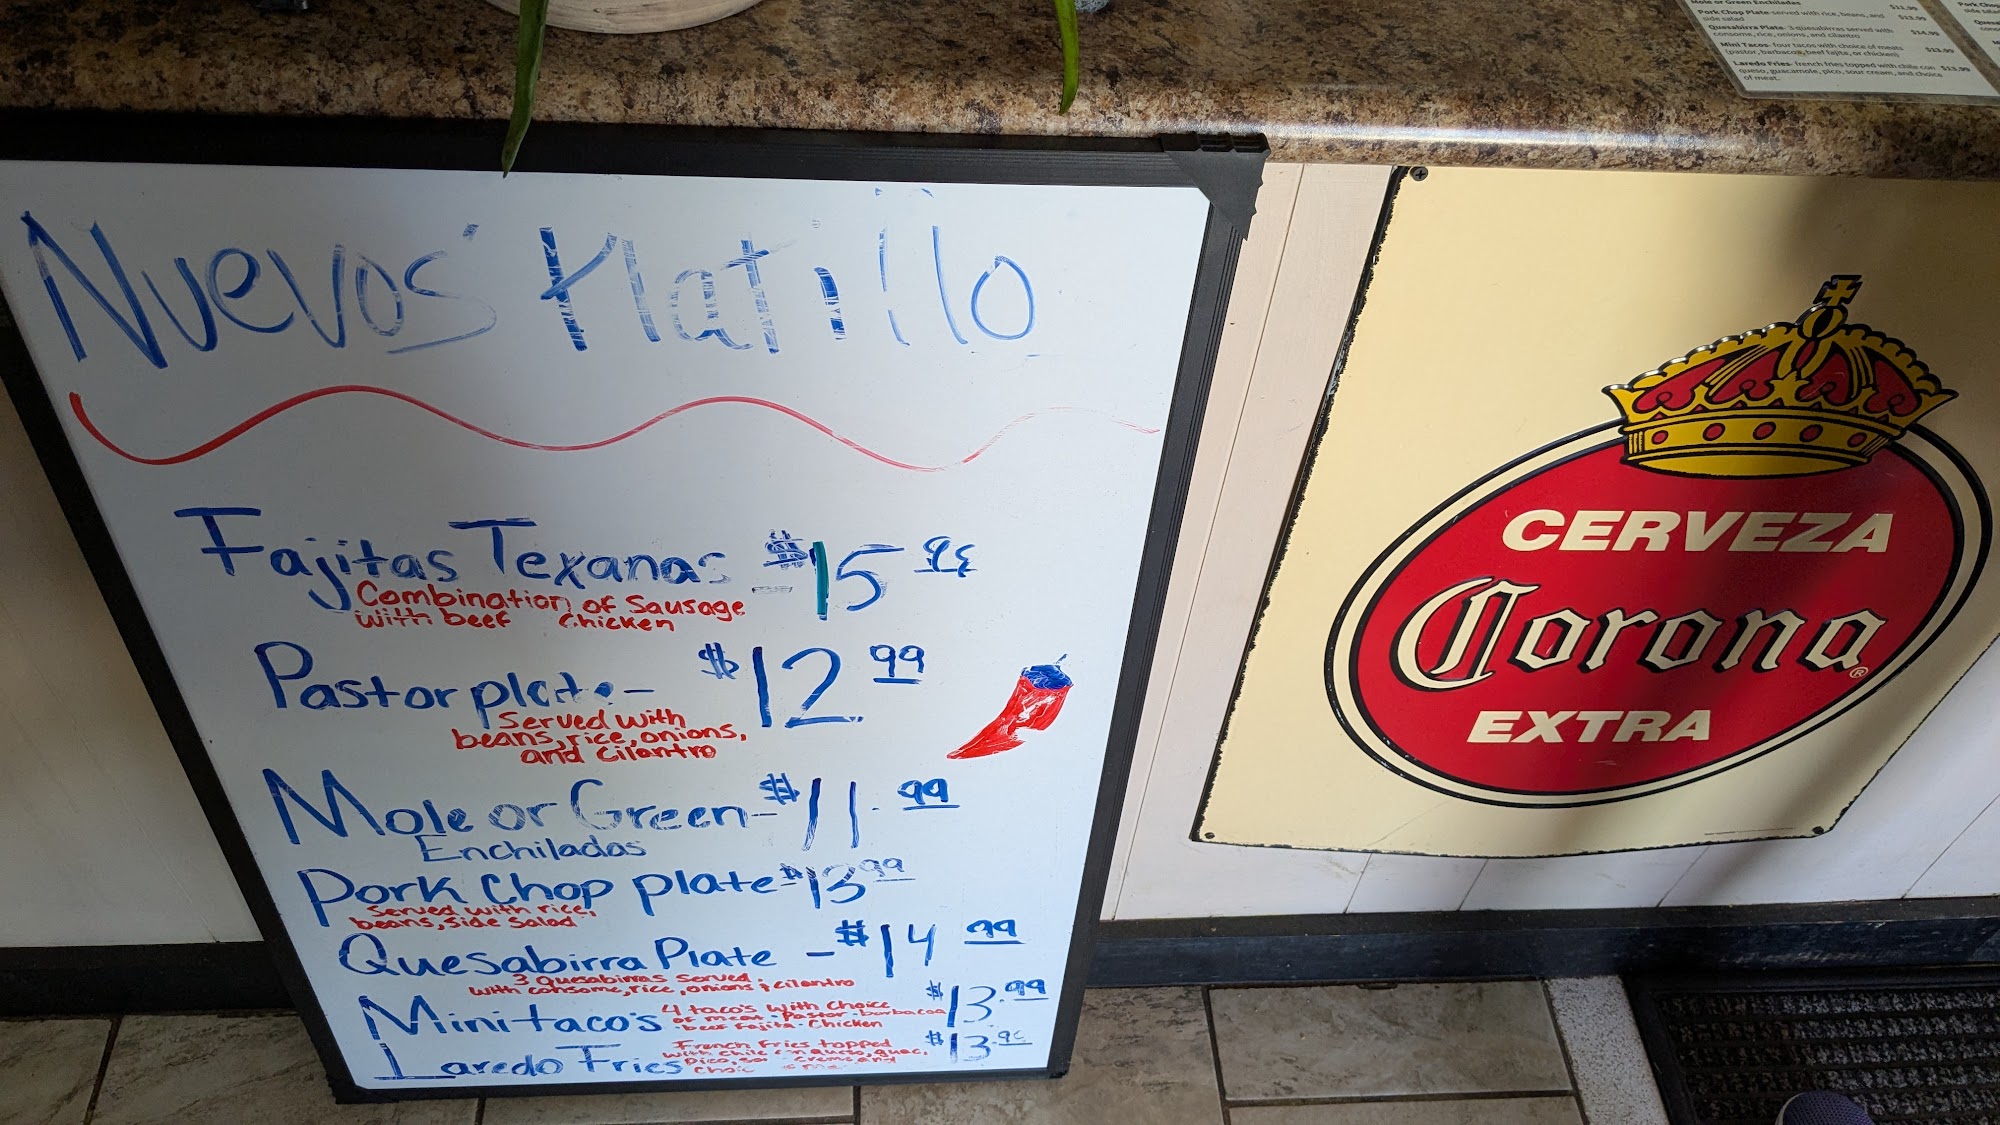 Mole or Green Enchiladas $11.99
Pork Chop Plate-served with rice, beans, and $13.99
side salad
Quesabirra Plate- 3 quesabirras served with $14.99
consome, rice, onions, and cilantro
Mini Tacos- four tacos with choice of meats $13.99
(pastor, barbacoa, beef fajita, or chicken)
Laredo Fries- french fries topped with chile con $13.99
queso, guacamole, pico, sour cream, and choice
of meat.
Pork Chop
side salad
Nuevos Platillo
Fajitas Texanas - $15
Combination of Sausage
with beef Chicken
Pastor plate - $12 99
Served with
beans, rice, onions,
and cilantro
Mole or Green - $11.99
Enchiladas
Pork Chop plate - $13 99
Served with rice,
beans, side salad
Quesabirra Plate - $14 99
3 quesabirras served
with consome, rice, onions & cilantro
Minitaco's $13.99
4 taco's with choice
of meat · Pastor · barbacoa
· beef Fajita · Chicken
Laredo Fries $13.
French Fries topped
with chile con queso, guac,
Pico, Creme and
CERVEZA
Corona®
EXTRA